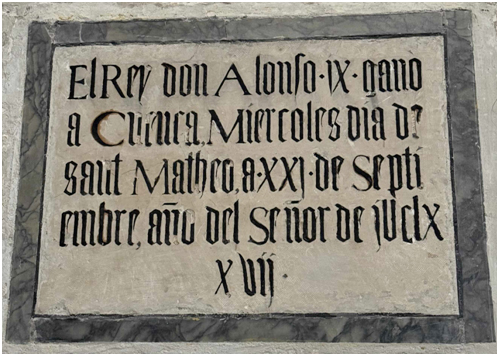 El Rey don Alonso·ix·gano
a Cuenca, Miercoles dia de
sant Matheo, a·xxj·de Septi
embre, año del Señor de jUclx
xVij·